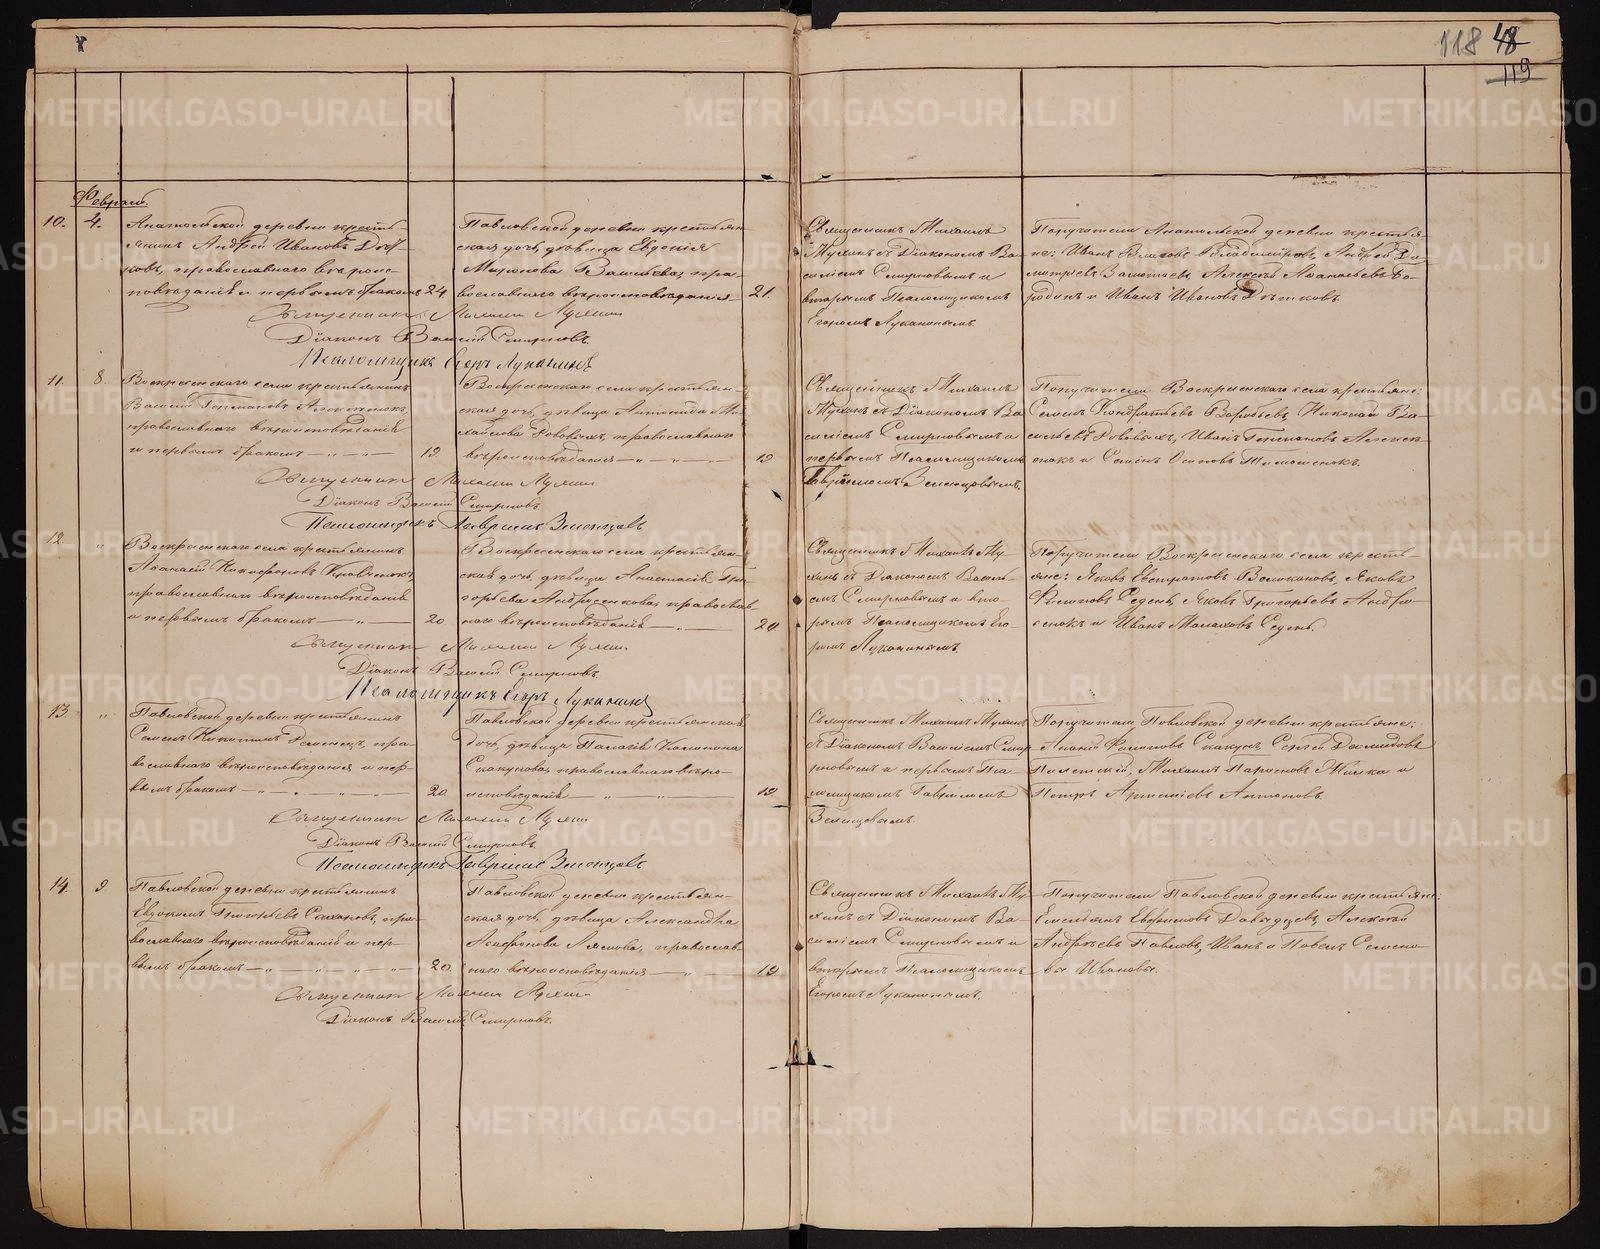 118 48
119
Февраль.
10. 4. Анатольской деревни кресть-
янинъ Андрей Ивановъ
православнаго вѣроис-
повѣданія и первымъ бракомъ 24
Павловской деревни крестьян-
ская дочь, дѣвица Евдокія
Миронова Васильева, пра-
вославнаго вѣроисповѣданія 21.
Священникъ Михаилъ
Мухинъ съ Діакономъ Ва-
силіемъ Смирновымъ и
вторымъ Псаломщикомъ
Егоромъ Луканинымъ.
Поручители Анатольской деревни крестья-
не: Иванъ Власовъ Владиміровъ, Андрей Ди-
митріевъ Алексѣй Аѳанасьевъ Бо-
родинъ и Иванъ Ивановъ
Священникъ Михаилъ Мухинъ
Діаконъ Василій Смирновъ.
Псаломщикъ Егоръ Луканинъ
11. 8. Воскресенскаго села крестьянинъ
Василій
православнаго вѣроисповѣданія
и первымъ бракомъ 19
Воскресенскаго села крестьян-
ская дочь, дѣвица Антонида Ми-
хайлова православнаго
вѣроисповѣданія 19
Священникъ Михаилъ
Мухинъ съ Діакономъ Ва-
силіемъ Смирновымъ и
первымъ Псаломщикомъ
Гавріиломъ Зеленцовымъ.
Поручители Воскресенскаго села крестьяне:
Семенъ Кондратьевъ Воробьевъ, Николай Ва-
сильевъ Иванъ
и Семенъ Осиповъ
Священникъ Михаилъ Мухинъ
Діаконъ Василій Смирновъ
Псаломщикъ Гавріилъ Зеленцовъ
12 " Воскресенскаго села крестьянинъ
Аѳанасій Никифоровъ
православнаго вѣроисповѣданія
и первымъ бракомъ 20
Воскресенскаго села крестьян-
ская дочь, дѣвица Анастасія Гри-
горьева Андросенкова, православ-
наго вѣроисповѣданія 20.
Священникъ Михаилъ Му-
хинъ съ Діакономъ Васил-
емъ Смирновымъ и вто-
рымъ Псаломщикомъ Его-
ромъ Луканинымъ.
Поручители Воскресенскаго села кресть-
яне: Яковъ Евстратовъ Великановъ, Яковъ
Филиповъ Седень, Яковъ Григорьевъ Андро-
сенокъ и Иванъ Малаховъ Седень.
Священникъ Михаилъ Мухинъ
Діаконъ Василій Смирновъ.
Псаломщикъ Егоръ Луканинъ
13 " Павловской деревни крестьянинъ
Семенъ Никитинъ пра-
вославнаго вѣроисповѣданія и пер-
вымъ бракомъ 20
Павловской деревни крестьянская
дочь, дѣвица Палагія
Скакунова, православнаго вѣро-
исповѣданія 19
Священникъ Михаилъ Мухинъ
съ Діакономъ Василіемъ Смир-
новымъ и первымъ Пса-
ломщикомъ Гавріиломъ
Зеленцовымъ.
Поручители Павловской деревни крестьяне:
Ананій Филиповъ Скакунъ, Сергѣй Давыдовъ
Михаилъ и
Петръ Артеміевъ Антоновъ.
Священникъ Михаилъ Мухинъ
Діаконъ Василій Смирновъ.
Псаломщикъ Гавріилъ Зеленцовъ
14. 9 Павловской деревни крестьянинъ
Евдокимъ Григорьевъ пра-
вославнаго вѣроисповѣданія и пер-
вымъ бракомъ 20.
Павловской деревни крестьян-
ская дочь, дѣвица Александра
Агафонова Лямова, православ-
наго вѣроисповѣданія 19
Священникъ Михаилъ Му-
хинъ съ Діакономъ Ва-
силіемъ Смирновымъ и
вторымъ Псаломщикомъ
Егоромъ Луканинымъ.
Поручители Павловской деревни крестьяне:
Емельянъ Евѳимовъ Алексѣй
Андреевъ Павловъ, Иванъ и Павелъ Семено-
вы Ивановы.
Священникъ Михаилъ Мухинъ
Діаконъ Василій Смирновъ.
METRIKI.GASO-URAL.RU